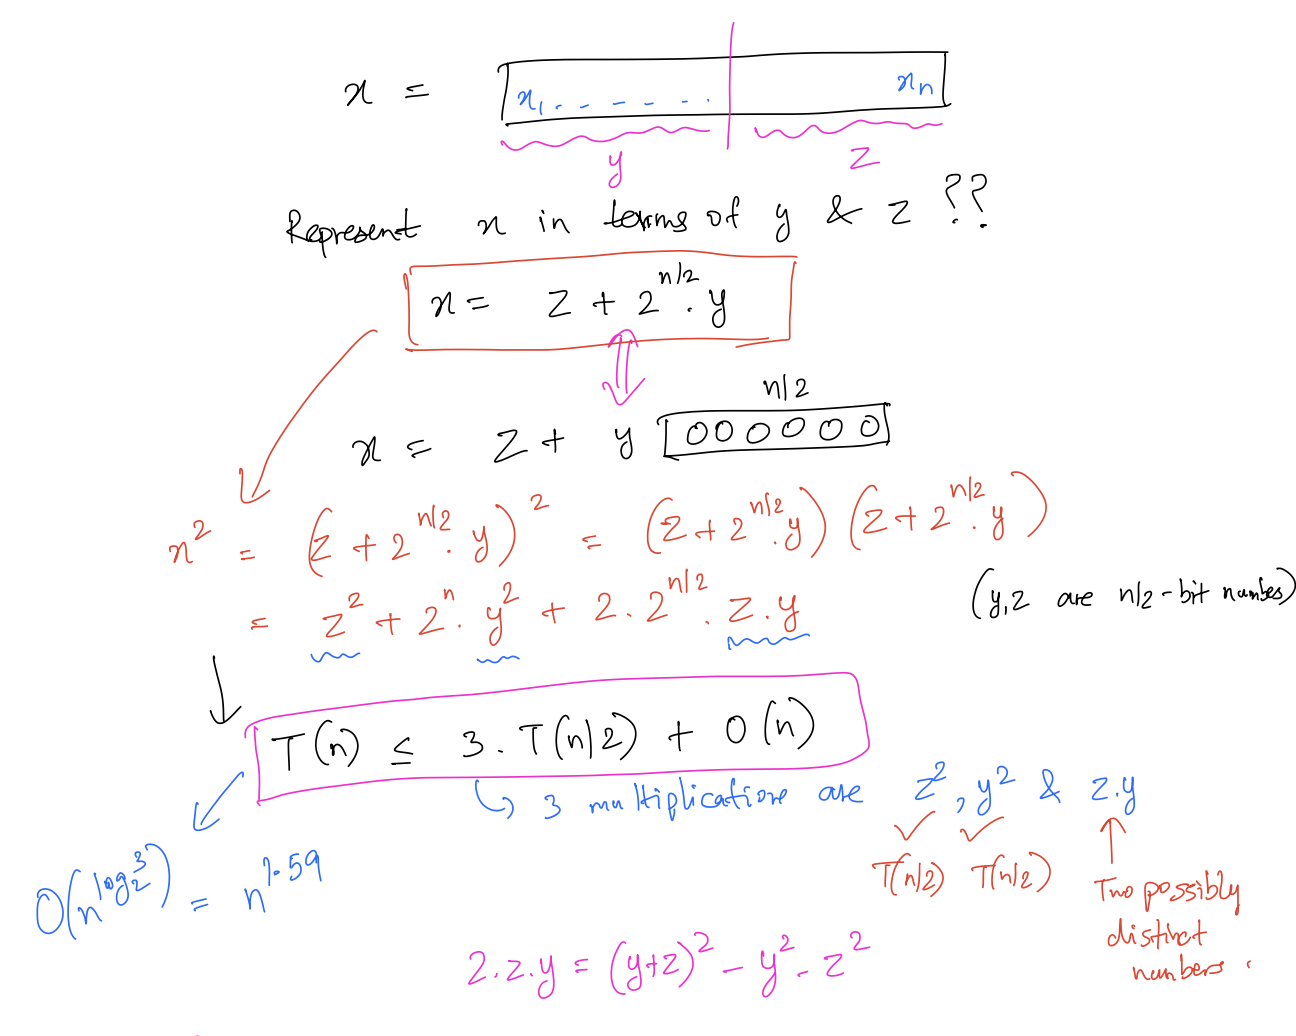 x = x₁ . - - - - . . xₙ
y z
Represent x in terms of y & z ??
x = z + 2^{n/2} . y
n/2
x = z + y 000000
x² = (z + 2^{n/2} . y)² = (z + 2^{n/2} . y) (z + 2^{n/2} . y)
= z² + 2ⁿ . y² + 2 . 2^{n/2} . z . y
(y,z are n/2-bit numbes)
T(n) ≤ 3 . T(n/2) + O(n)
↳ 3 multiplications are z² , y² & z.y
T(n/2) T(n/2)
Two possibly
distinct
numbers .
O(n^{log₂3}) = n^{1.59}
2.z.y = (y+z)² - y² - z²